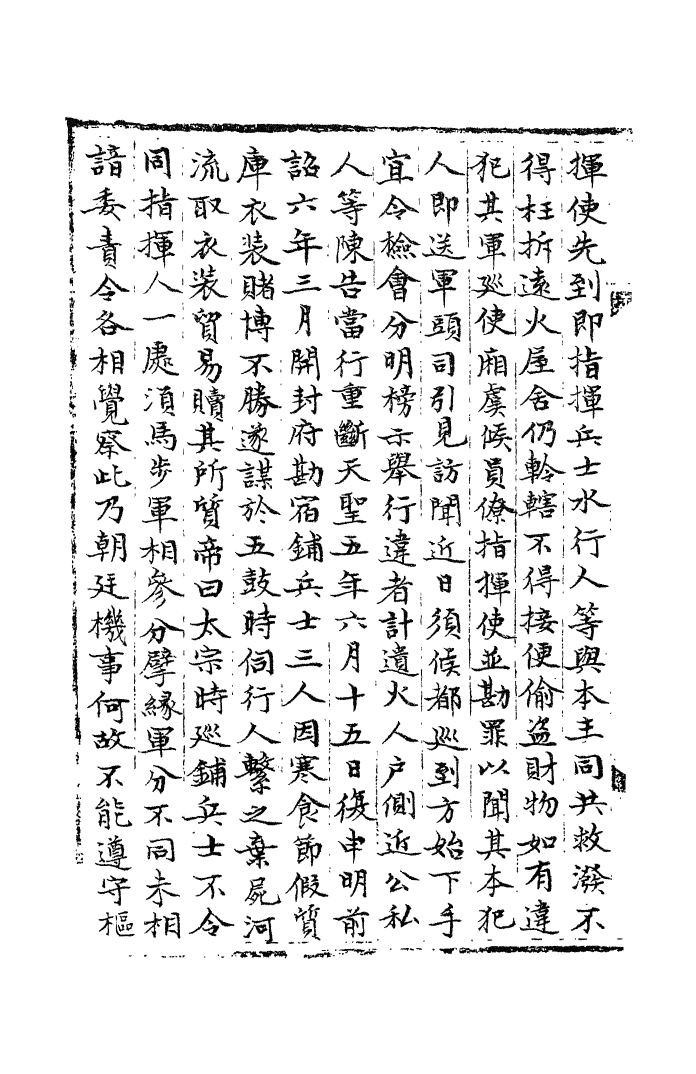 揮使先到即指揮兵士水行人等與本主同共救潑不
得枉拆遠火屋舍仍軨轄不得接便偷盗財物如有違
犯其軍廵使廂虞候員僚指揮使並勘罪以聞其本犯
人即送軍頭司引見訪聞近日須候都廵到方始下手
宜令檢會分明榜示舉行違者計遺火人户側近公私
人等陳告當行重斷天聖五年六月十五日復申明前
詔六年三月開封府勘宿鋪兵士三人因寒食節假質
庫衣装賭博不勝遂謀於五鼓時伺行人繫之棄屍河
流取衣装貿易贖其所質帝曰太宗時廵鋪兵士不令
同指揮人一處須馬步軍相參分擘縁軍分不同未相
諳委責令各相覺察此乃朝廷機事何故不能遵守樞